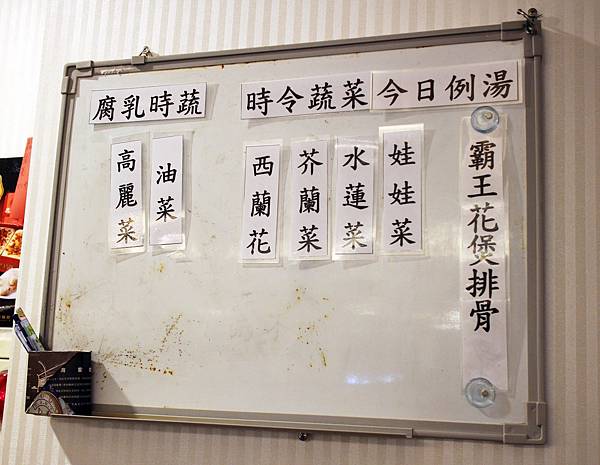 今日例湯
霸王花煲排骨
時令蔬菜
娃娃菜
水蓮菜
芥蘭菜
西蘭花
腐乳時蔬
油菜
高麗菜